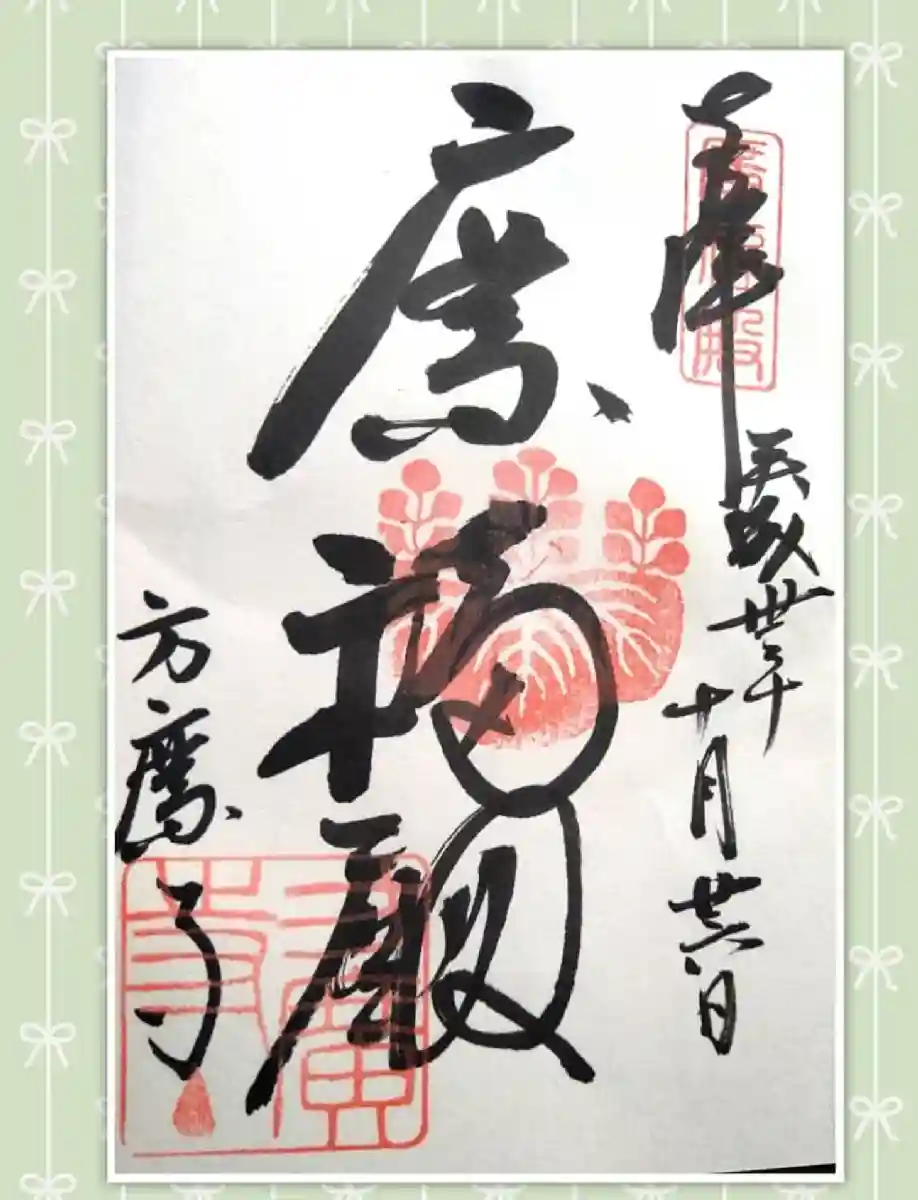 奉拝
平成丗年十月廿六日
廣福殿
方廣寺